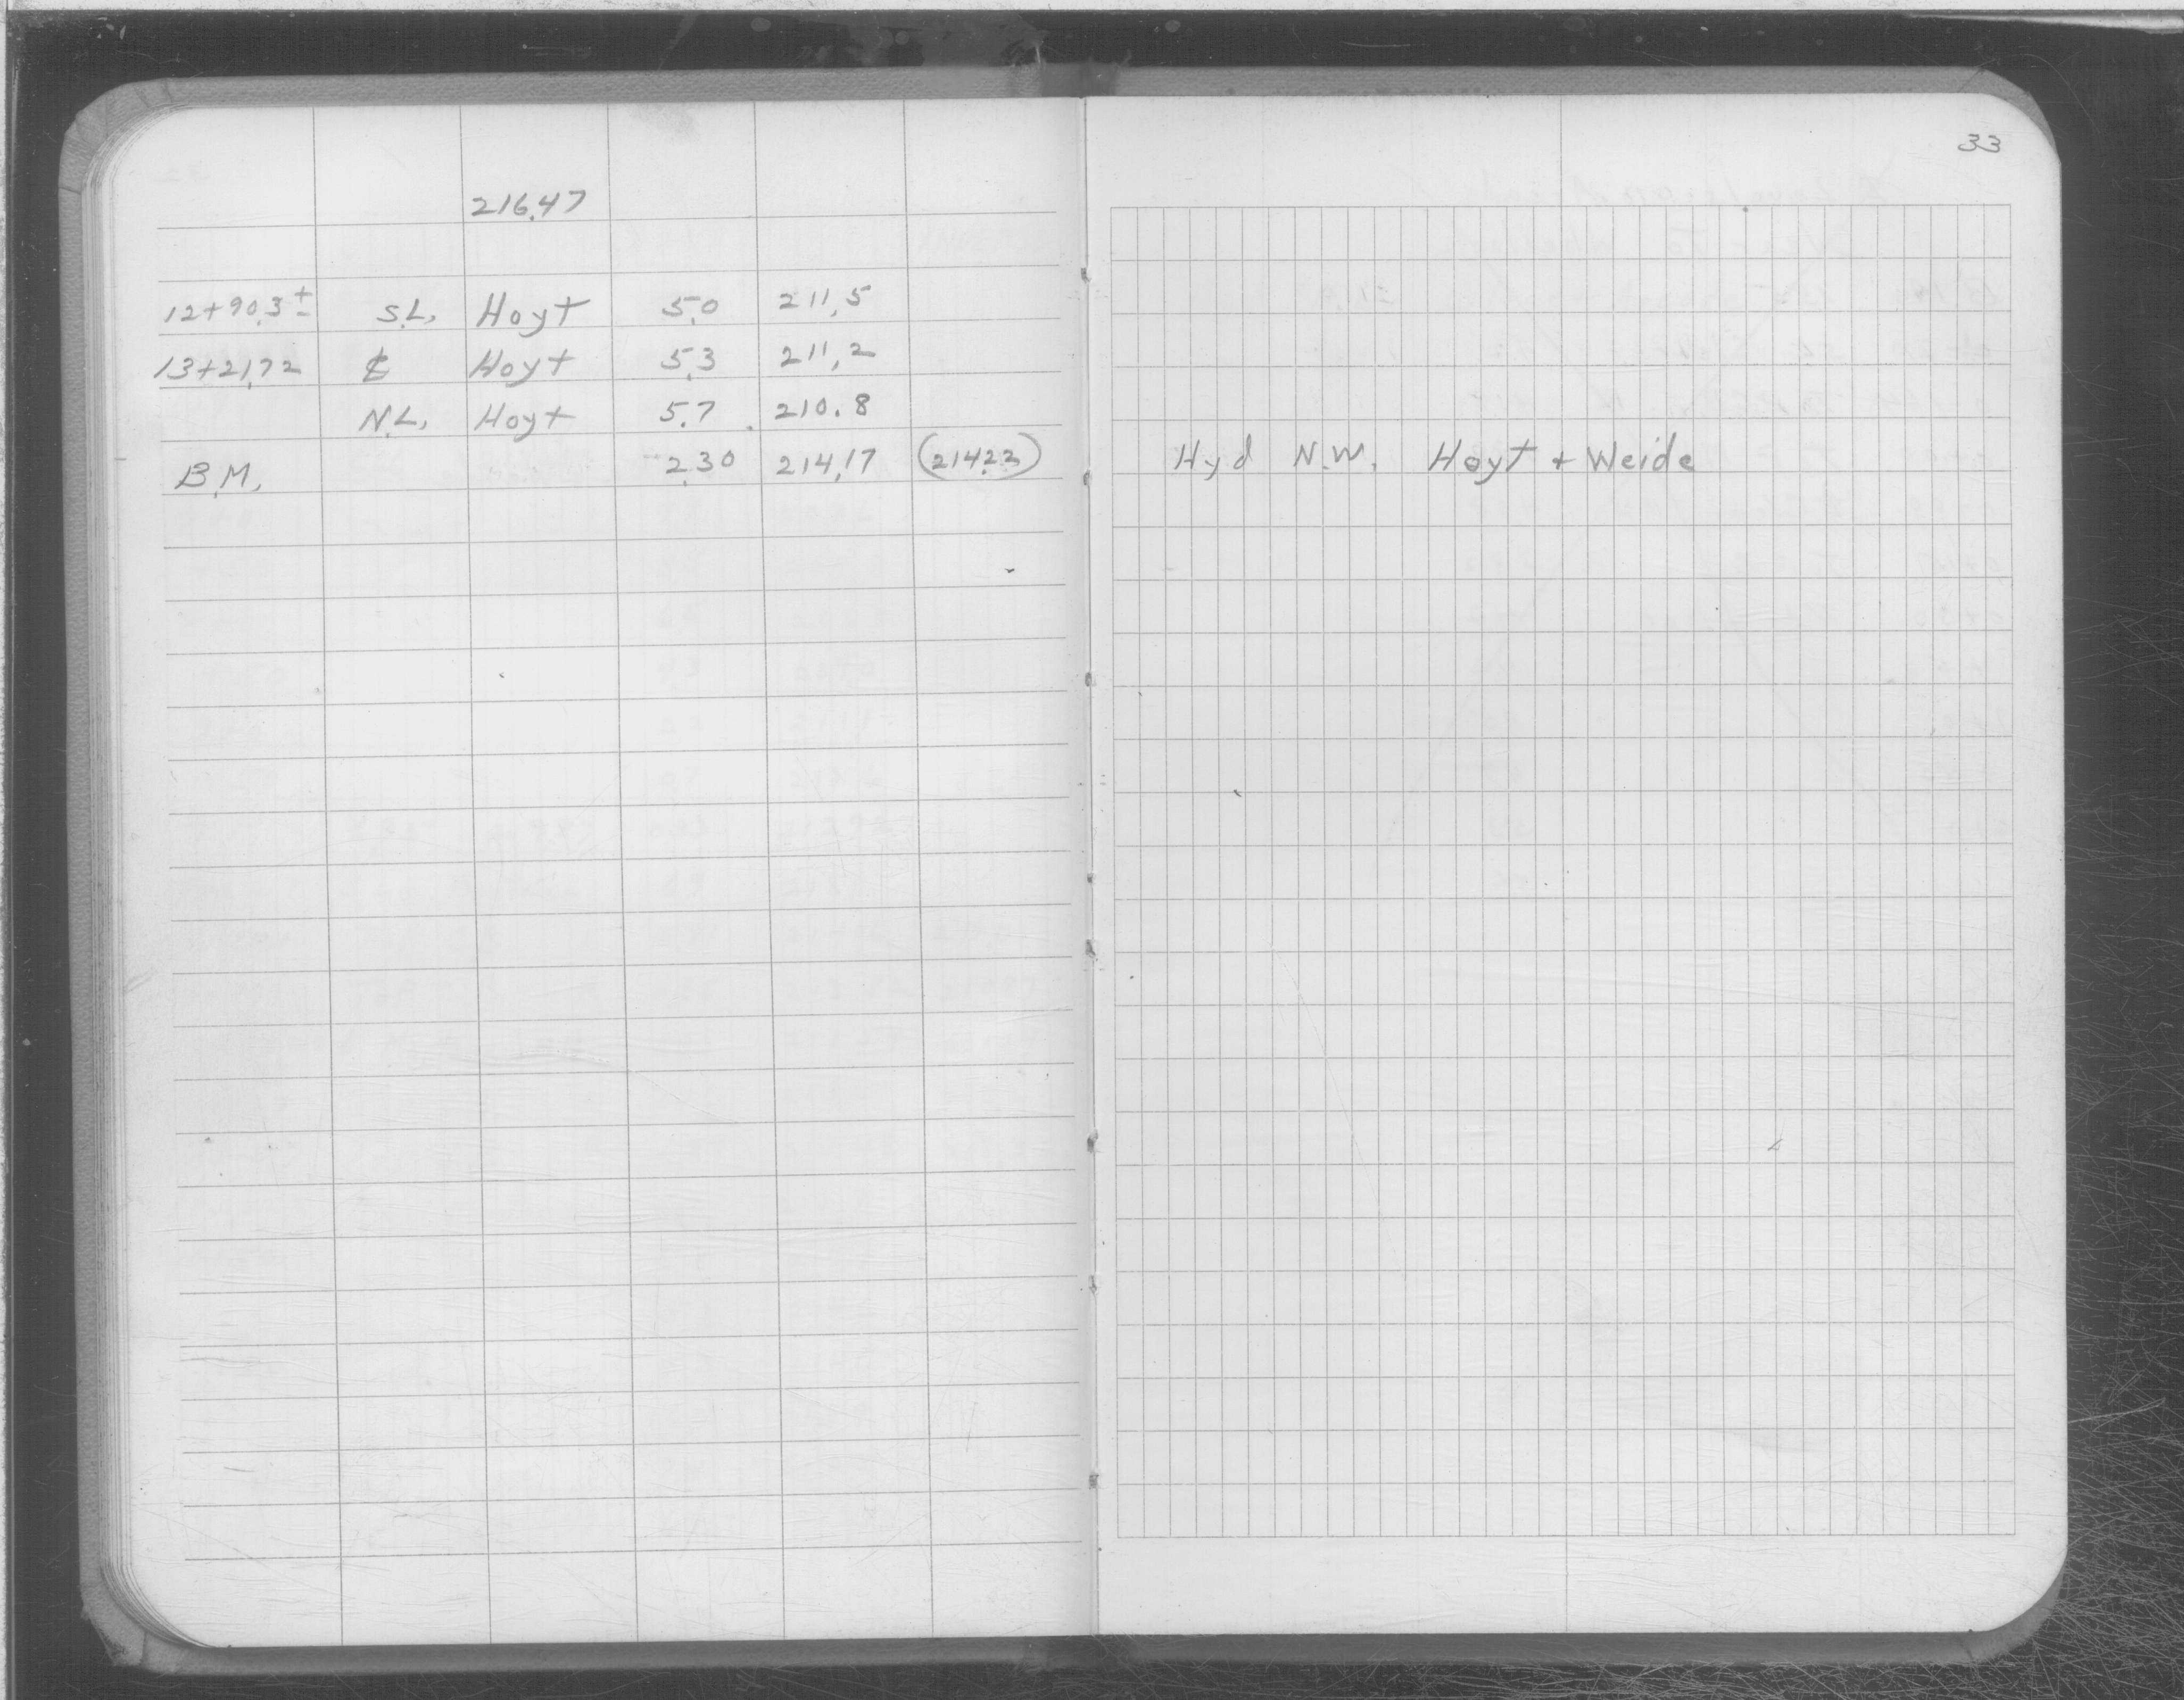 33
216.47
12+90.3± S.L. Hoyt 5.0 211.5
13+21.72 ℄ Hoyt 5.3 211.2
N.L. Hoyt 5.7 210.8
B.M. 2.30 214.17 (214.23) Hyd N.W. Hoyt + Weide